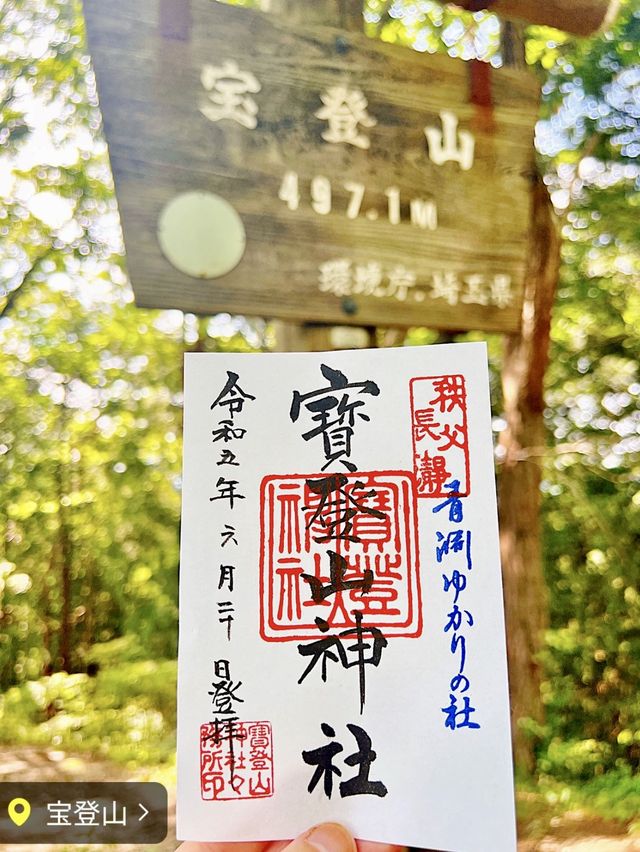 宝登山
497.1m
環境庁・埼玉県
秩父
長瀞
青淵ゆかりの社
寶登山神社
寶登山
神社
令和五年六月二十日登拝
寶登山
神社々
務所印
宝登山